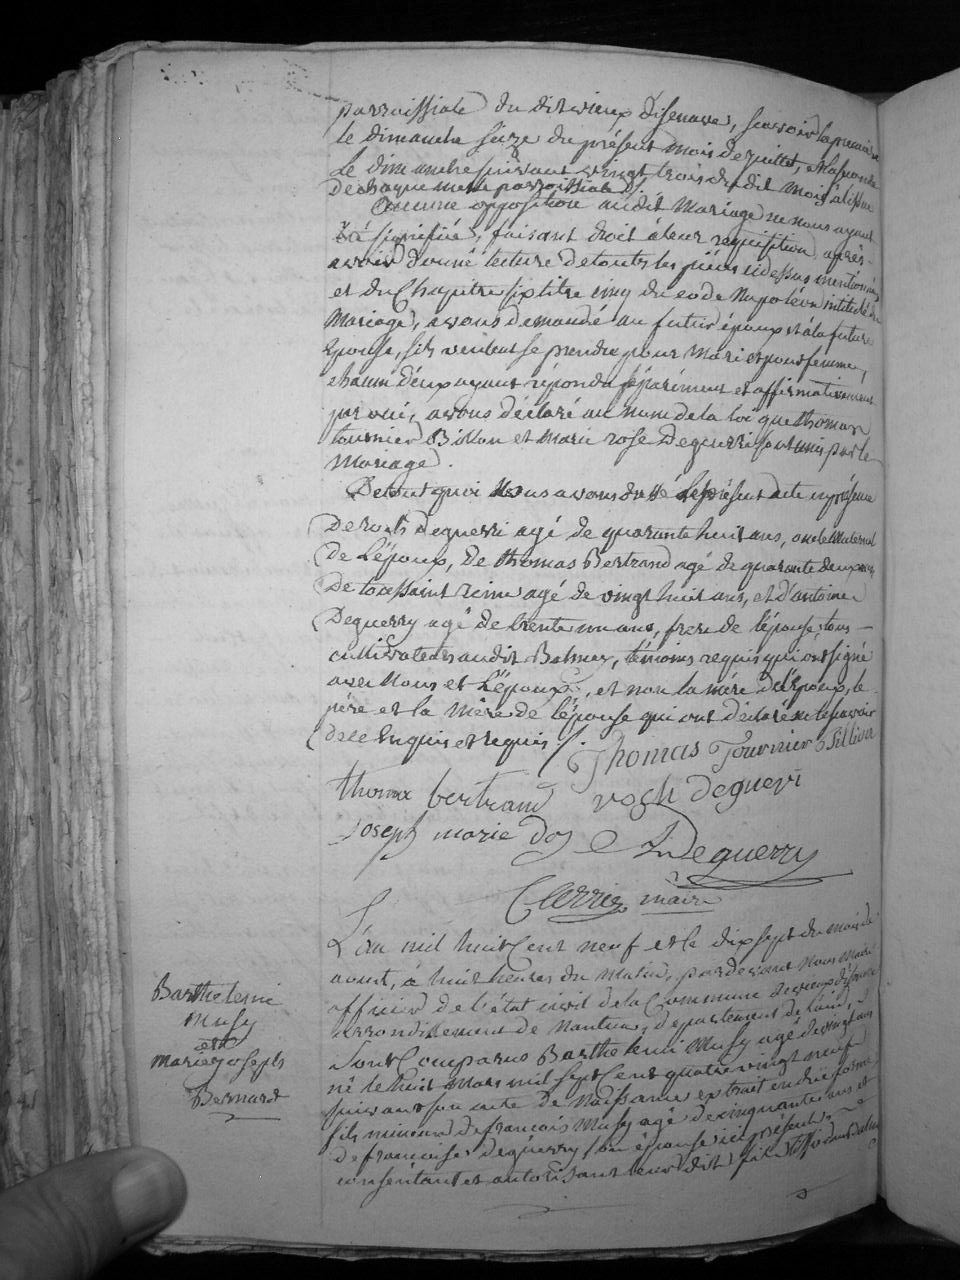 parroissiale du dit vieux d'isenave, scavoir la premiere
le dimanche seize du présent mois de juillet, et la seconde
le dimanche suivant vingt trois du dit mois à l'issue
de chaque messe parroissiale
Aucune opposition audit Mariage ne nous ayant
été signifiée, faisant droit à leur requisition, après
avoir donné lecture de toutes les pièces cidessus mentionnées
et du Chapitre six titre cinq du code Napoléon intitulé du
Mariage, avons demandé au futur époux et à la future
Epouse, s'ils veulent se prendre pour Mari et pour femme,
chacun d'eux ayant répondu séparément et affirmativement
par oui, avons déclaré au nom de la loi que thomas
tournier Billon et Marie rose Deguerri sont unis par le
Mariage.
De tout quoi Nous avons dressé le présent acte en présence
De roch deguerri agé de quarante huit ans, oncle Maternel
de l'époux, De thomas Bertrand agé de quarante deux ans
De toussaint agé de vingt huit ans, et d'antoine
Deguerry agé de trente un ans, frere de l'épouse, tous
cultivateurs audit Balmey, témoins requis qui ont signé
avec Nous et l'époux, et non la mère de l'époux, le
père et la Mère de l'épouse qui ont déclaré ne le savoir
de ce Enquis et requis ./.
Thomas Tournier Billion
thomas bertrand roch degueri
Joseph marie Deguerry
maire
L'an mil huit Cent neuf et le dix sept du mois de
aoust, à huit heures du Matin, pardevant Nous Maire
officier de l'état civil de la Commune de vieux d'isenave
arrondissement de Nantua, département de l'ain,
Sont Comparus Barthelemi Musy agé de vingt ans
né le huit Mars mil sept Cent quatre vingt neuf
suivant son acte de Naissance extrait en due forme,
fils mineur de francois Musy agé de cinquante ans et
de francoise deguerry son épouse ici présents,
consentant et autorisant leur dit fils
Barthelemi
Musy
et
Marie Joseph
Bernard